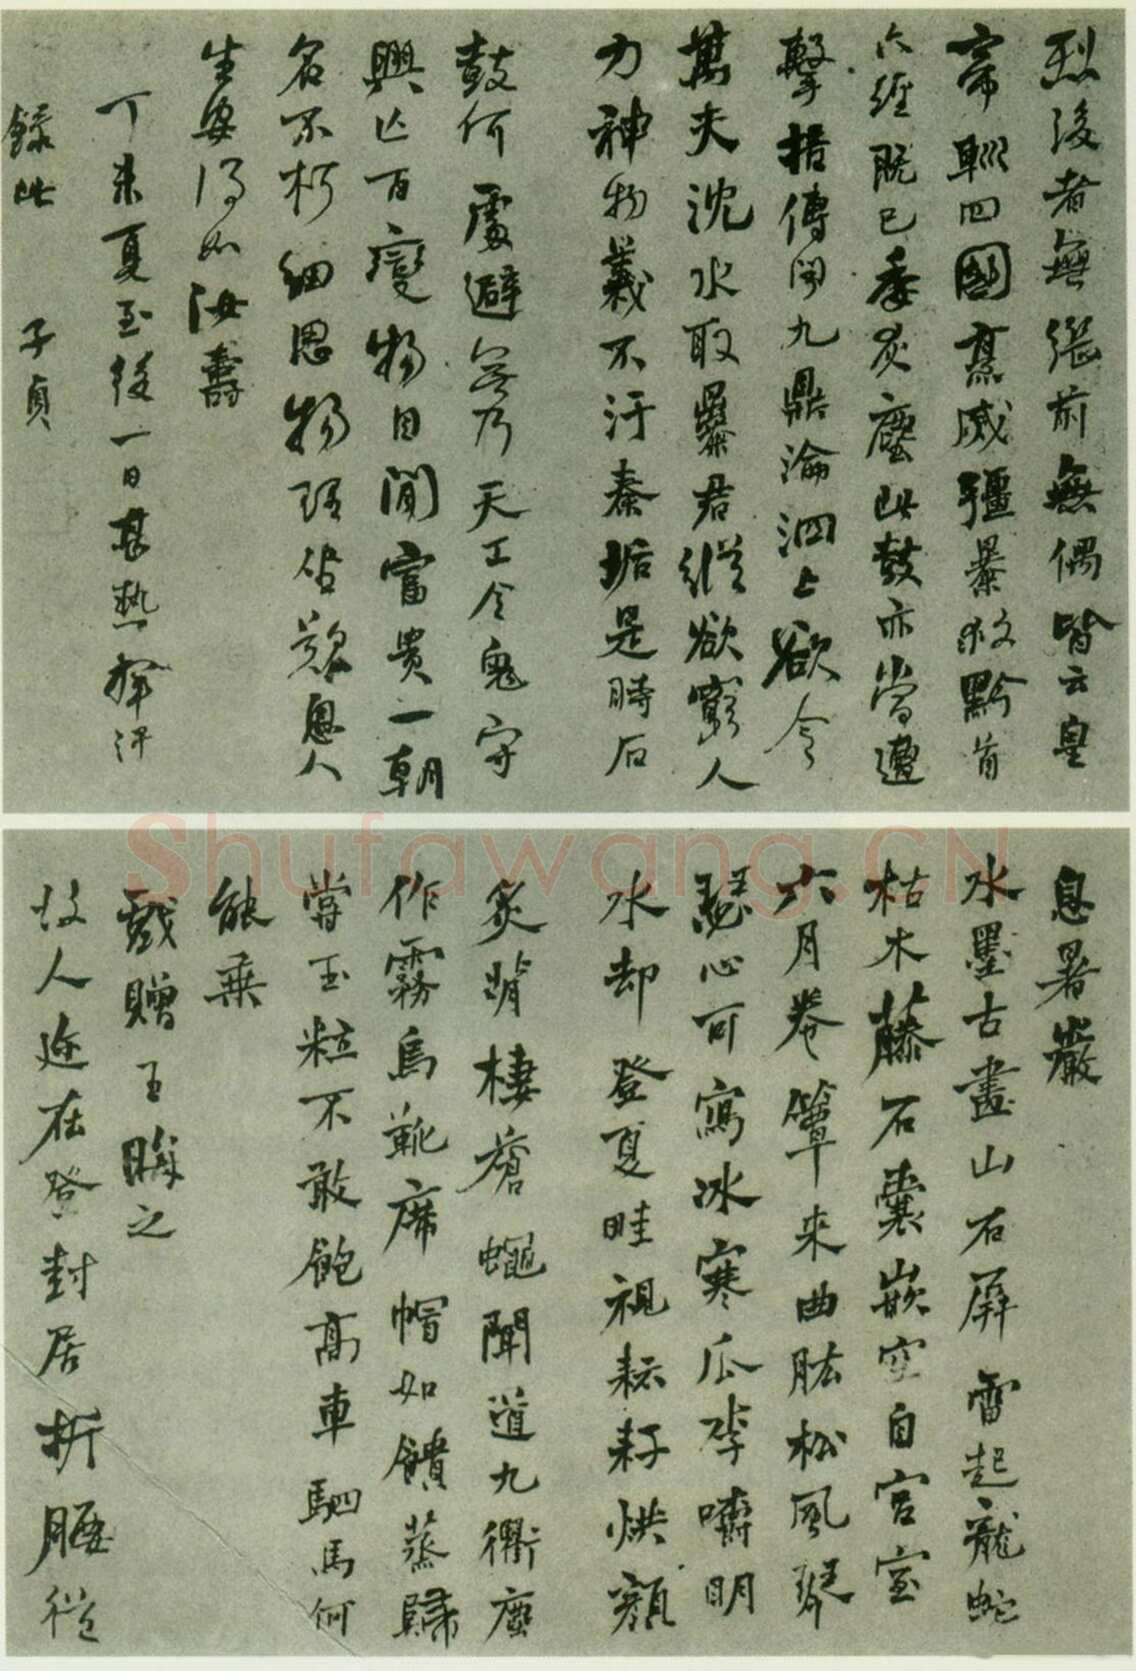 烈後者無繼前無偶皆云皇
帝聊四國烹滅彊暴救黔首
六經既已委灰塵此鼓亦當遭
擊掊傳聞九鼎淪泗上欲令
萬夫沈水取暴君縱欲窮人
力神物義不汙秦垢是時石
鼓何處避無乃天工令鬼守
興亡百變物自閒富貴一朝
名不朽細思物理坐歎息人
生安得如汝壽
丁未夏至後一日甚熱揮汗
錄此 子貞
Shufawang.CN
息暑巖
水墨古畫山石屏雷起龍蛇
枯木藤石囊嵌空自宮室
六月卷簟來曲肱松風琴
瑟心可寫冰寒瓜李嚼明
水却登夏畦視耘耔烘顏
炙背棲蒼蠅聞道九衢塵
作霧烏靴席帽如饋蒸歸
嘗玉粒不敢飽高車駟馬何
能乘
戲贈王晦之
故人迩在登封居折腰從